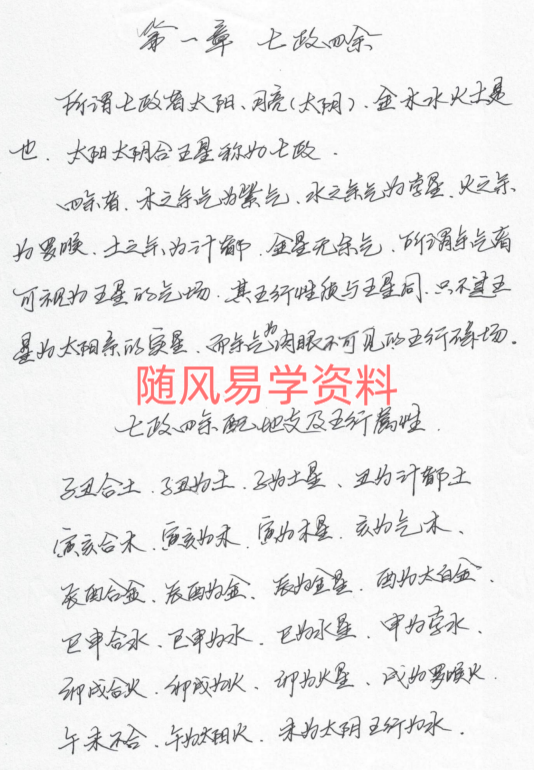 第一章 七政四余
所谓七政者太阳、月亮(太阴)、金木水火土是
也、太阳太阴合五星称为七政、
四余者、木之余气为紫气、水之余气为孛星、火之余
为罗喉、土之余为计都、金星无余气、所谓余气者
可视为五星的气场、其五行性质与五星同、只不过五
星为太阳系的实星、而余气为肉眼不可见的五行磁场。
随风易学资料
七政四余配地支及五行属性、
子丑合土、子丑为土、子为土星、丑为计都土
寅亥合木、寅亥为木、寅为木星、亥为气木、
辰酉合金、辰酉为金、辰为金星、酉为太白金、
巳申合水、巳申为水、巳为水星、申为孛水、
卯戌合火、卯戌为火、卯为火星、戌为罗喉火、
午未不合、午为太阳火、未为太阴五行为水、